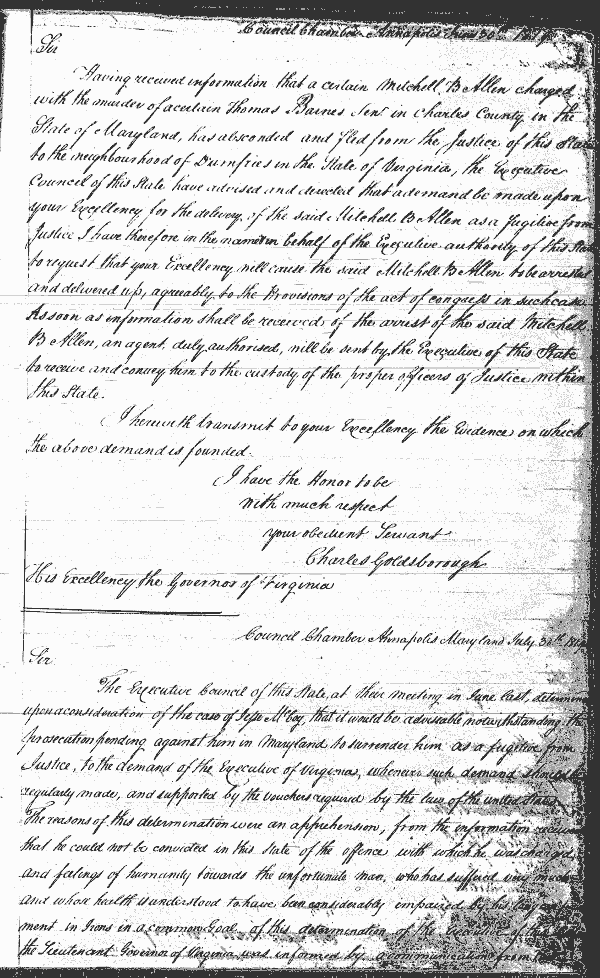 Council Chamber Annapolis June 30th 1819
Sir
Having received information that a certain Mitchell B Allen charged
with the murder of a certain Thomas Barnes Senr. in Charles County in the
State of Maryland, has absconded and fled from the Justice of this State
to the neighbourhood of Dumfries in the State of Virginia, the Executive
Council of this State have advised and directed that a demand be made upon
your Excellency for the delivery of the said Mitchell B Allen as a fugitive from
Justice I have therefore in the name & on behalf of the Executive authority of this State
to request that your Excellency will cause the said Mitchell B Allen to be arrested
and delivered up, agreeably to the Provisions of the act of congress in such case
As soon as information shall be received of the arrest of the said Mitchell
B Allen, an agent, duly authorised, will be sent by the Executive of this State
to receive and convey him to the custody of the proper officers of Justice within
this State.
I herewith transmit to your Excellency the Evidence on which
the above demand is founded.
I have the Honor to be
with much respect
your obedient Servant
Charles Goldsborough
His Excellency the Governor of Virginia
Council Chamber Annapolis Maryland July 30th
Sir
The Executive Council of this State, at their meeting in June last, determined
upon a consideration of the case of Jesse McCoy, that it would be adviseable notwithstanding the
prosecution pending against him in Maryland to surrender him as a fugitive from
Justice, to the demand of the Executive of Virginia, whenever such demand should be
regularly made, and supported by the vouchers required by the laws of the united States
The reasons of this determination were an apprehension, from the information received
that he could not be convicted in this state of the offence with which he was charged
and feelings of humanity towards the unfortunate man, who has suffered very much
and whose health is understood to have been considerably impaired by his long
ment in Irons in a common Goal. of this determination of the Executive of this
the Lieutenant Governor of Virginia was informed by a communication from